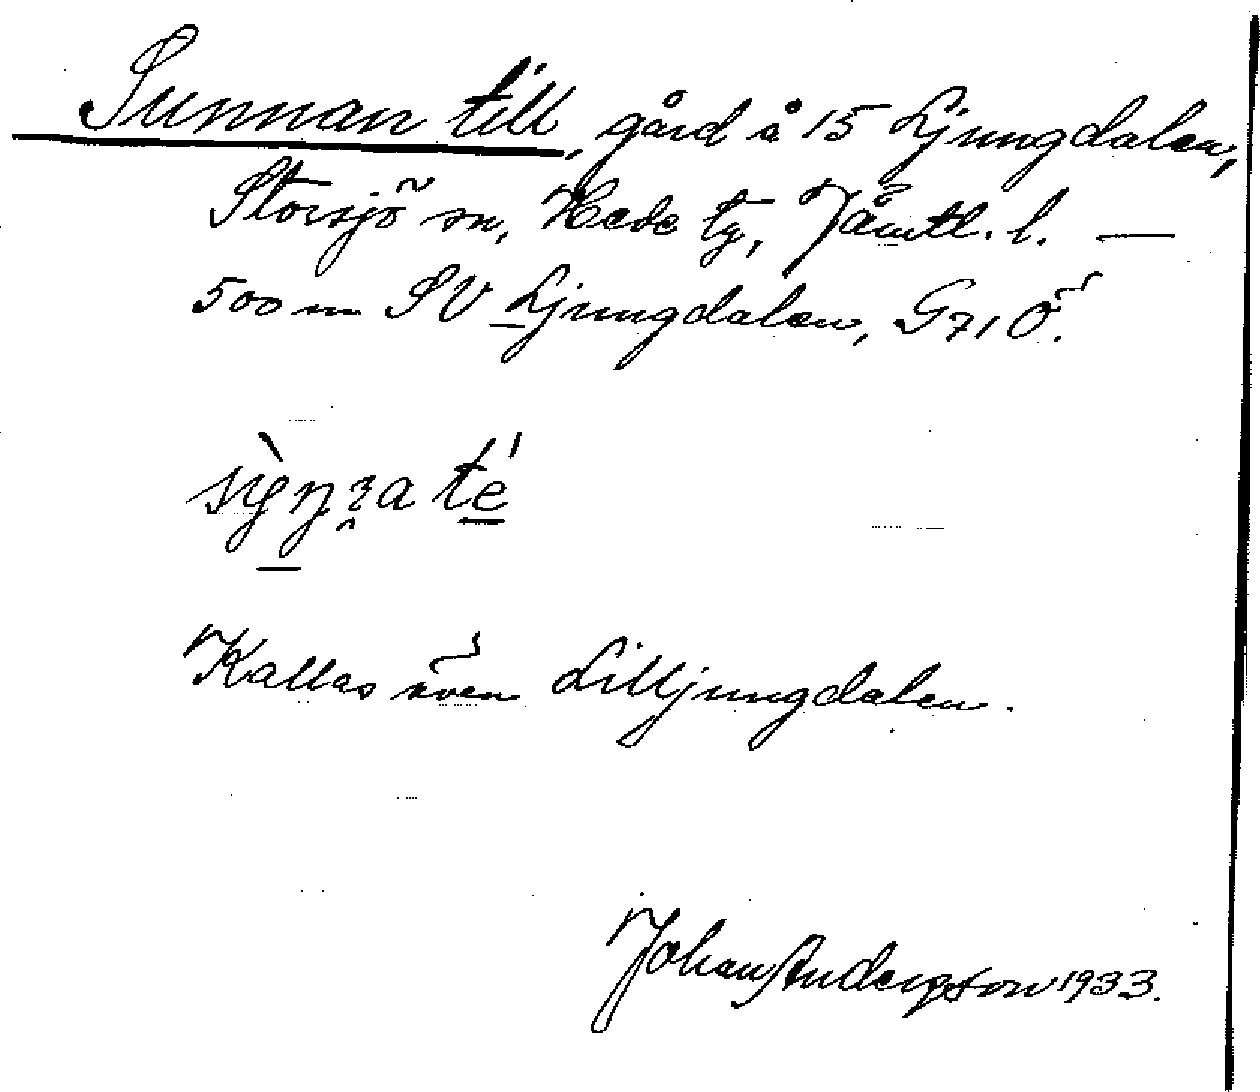 Sunnan till, gård å 15 Ljungdalen,
Storsjö sn, Hede tg, Jämtl. l. —
500 m SV Ljungdalen, G71Ö.
Kallas även Lilljungdalen.
Johan Andersson 1933.